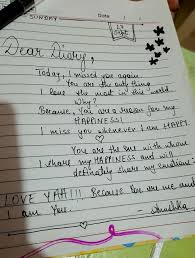 SUNDAY Date
Dear Diary,
Today, I missed you again
You are the only thing
I love the most in this world
Why?
Because, You are a reason for my
HAPPINESS!
I miss you whenever I am HAPPY
You are the one with whom
I share my HAPPINESS and will
definately share my Emotions
LOVE YAH!!! Because you are me and
I am You.
Anushka